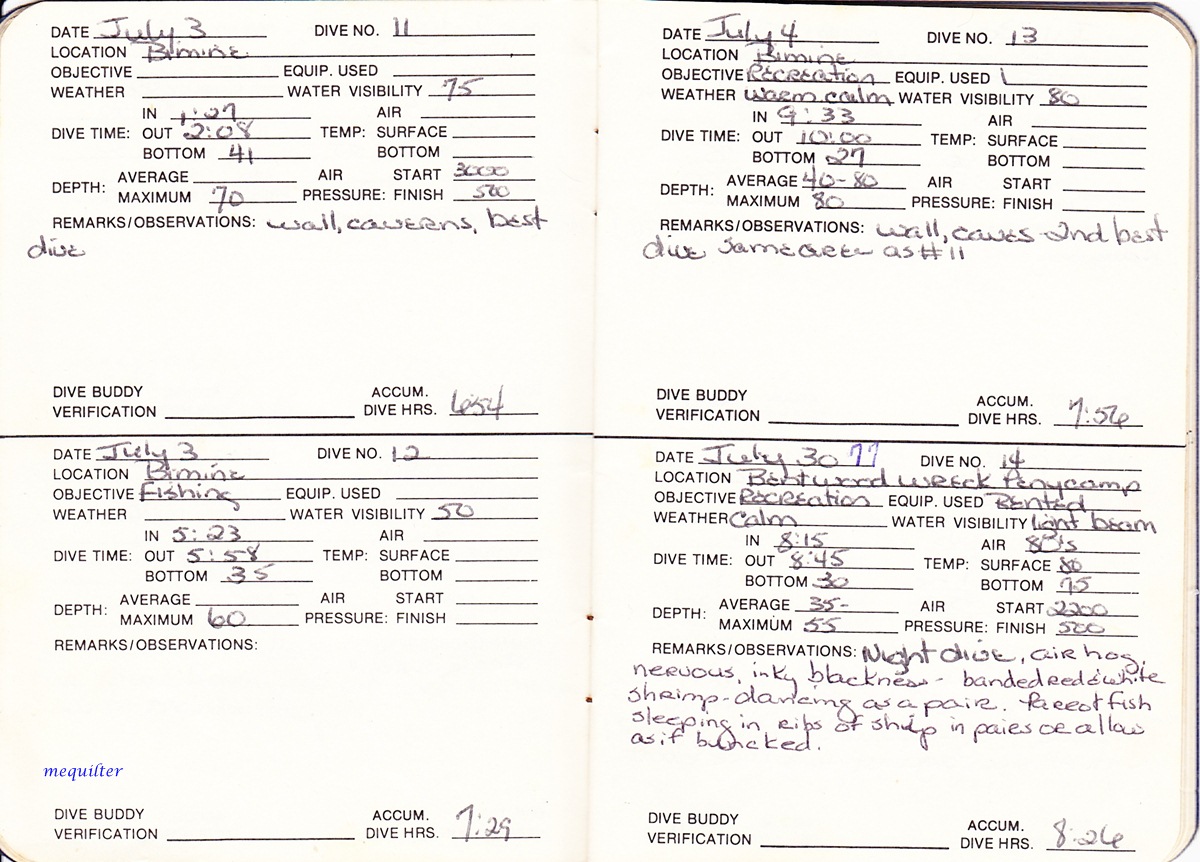 DATE July 3 DIVE NO. 11
LOCATION Bimine
OBJECTIVE EQUIP. USED
WEATHER WATER VISIBILITY 75
IN 1:27 AIR
DIVE TIME: OUT 2:08 TEMP: SURFACE
BOTTOM 41 BOTTOM
AVERAGE AIR START 3000
DEPTH: MAXIMUM 70 PRESSURE: FINISH 500
REMARKS/OBSERVATIONS: wall, caverns, best
dive
DIVE BUDDY ACCUM.
VERIFICATION DIVE HRS. 6:54
DATE July 3 DIVE NO. 12
LOCATION Bimine
OBJECTIVE Fishing EQUIP. USED
WEATHER WATER VISIBILITY 50
IN 5:23 AIR
DIVE TIME: OUT 5:58 TEMP: SURFACE
BOTTOM 35 BOTTOM
AVERAGE AIR START
DEPTH: MAXIMUM 60 PRESSURE: FINISH
REMARKS/OBSERVATIONS:
mequilter
DIVE BUDDY ACCUM.
VERIFICATION DIVE HRS. 7:29
DATE July 4 DIVE NO. 13
LOCATION Bimine
OBJECTIVE Recreation EQUIP. USED
WEATHER warm. calm WATER VISIBILITY 80
IN 9:33 AIR
DIVE TIME: OUT 10:00 TEMP: SURFACE
BOTTOM 27 BOTTOM
AVERAGE 40-80 AIR START
DEPTH: MAXIMUM 80 PRESSURE: FINISH
REMARKS/OBSERVATIONS: wall, caves 2nd best
dive same as #11
DIVE BUDDY ACCUM.
VERIFICATION DIVE HRS. 7:56
DATE July 30 77 DIVE NO. 14
LOCATION Bentwood wreck Penycamp
OBJECTIVE Recreation EQUIP. USED Rented
WEATHER Calm WATER VISIBILITY light beam
IN 8:15 AIR 80's
DIVE TIME: OUT 8:45 TEMP: SURFACE 80
BOTTOM 30 BOTTOM 75
AVERAGE 35- AIR START 2200
DEPTH: MAXIMUM 55 PRESSURE: FINISH 500
REMARKS/OBSERVATIONS: Night dive, air hog,
nervous, inky blackness - banded red & white
shrimp - dancing as a pair. Parrot fish
sleeping in ribs of ship in pairs or all
as if bunked.
DIVE BUDDY ACCUM.
VERIFICATION DIVE HRS. 8:26